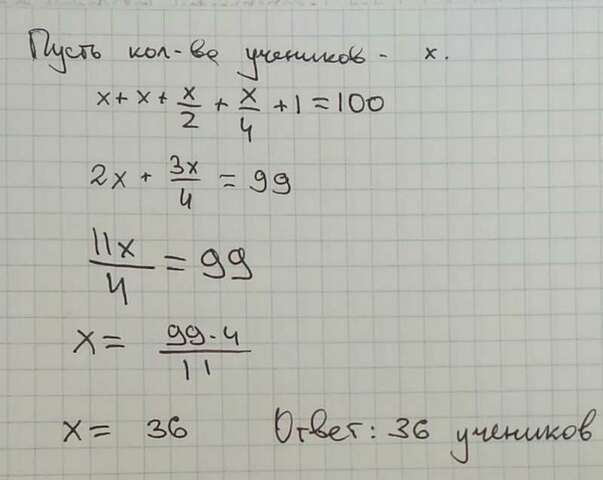 Пусть кол-во учеников - x.
x + x + x/2 + x/4 + 1 = 100
2x + 3x/4 = 99
11x/4 = 99
x = 99·4/11
x = 36 Ответ: 36 учеников